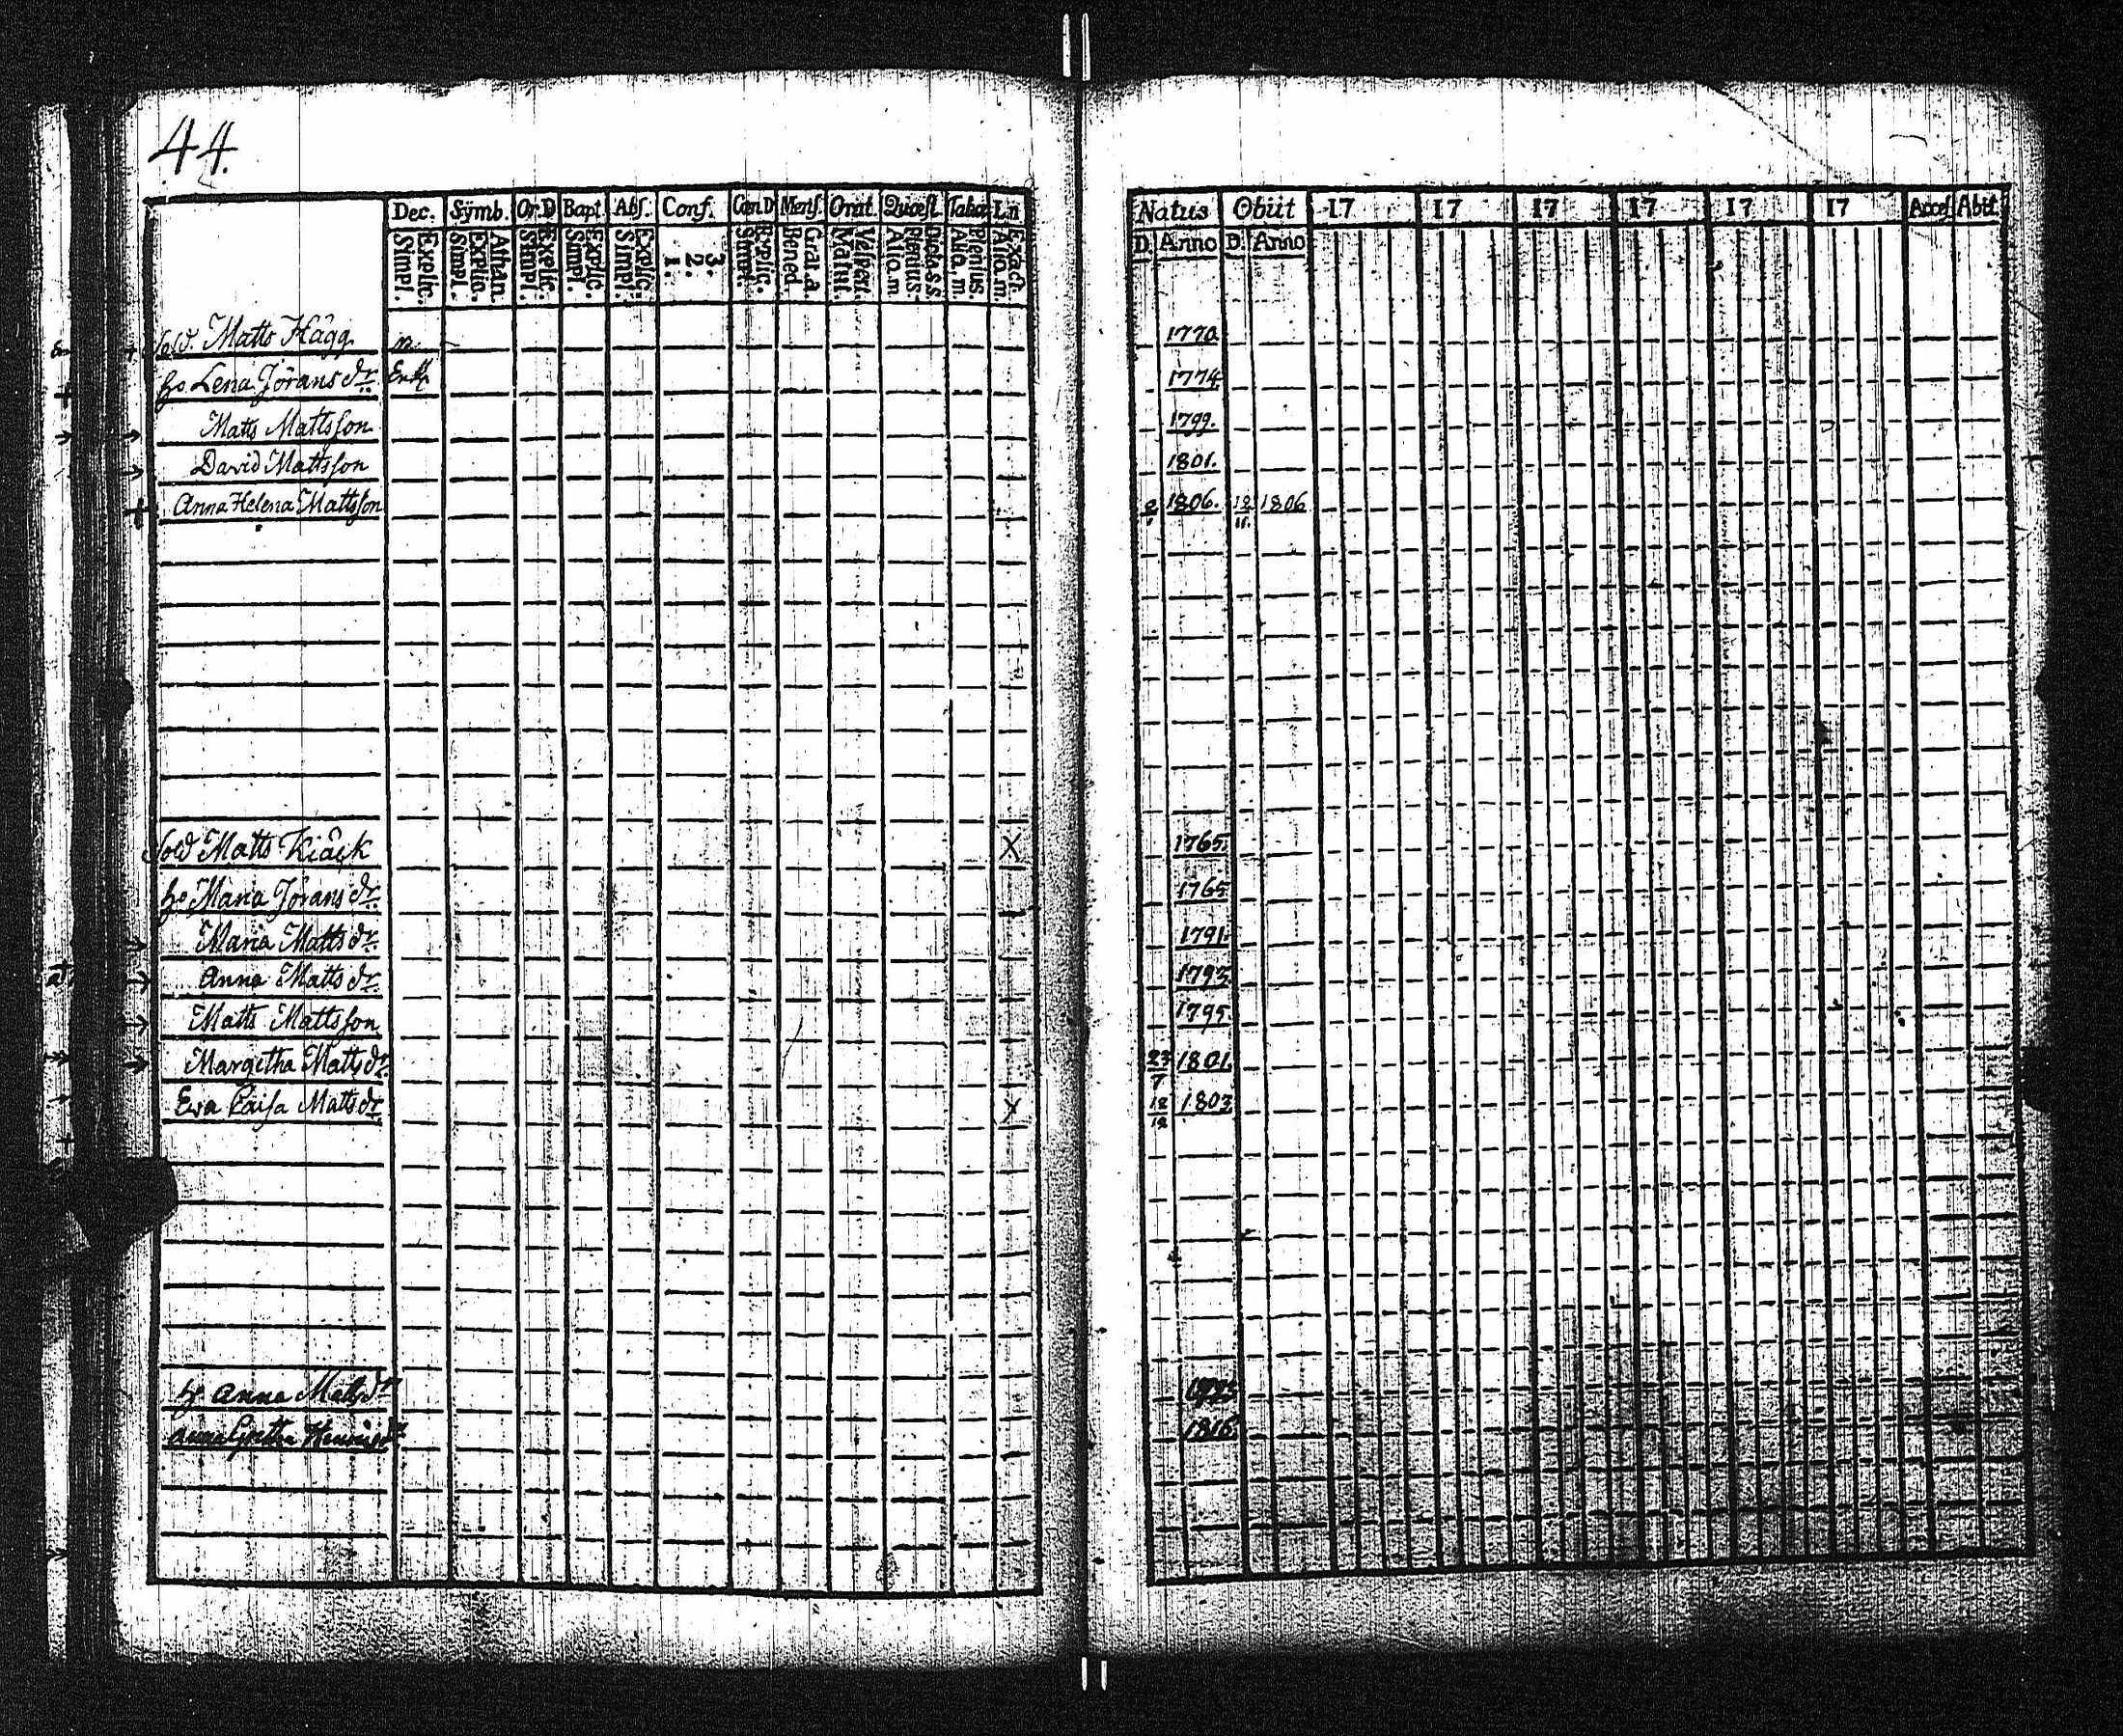 44.
Dec. Symb. Or.D Bapt. Abs. Conf. Cœn.D Mens. Orat. Quæst. Tabæ L.n
Simpl. Explic. Simpl. Explic. Athan. Simpl. Explic. Simpl. Explic. Simpl. Explic. 1. 2. 3. Simpl. Explic. Bened. Grat. a. Matut. Vespert. Aliq. m Plenius. Dicta S.S. Aliq. m. Plenius. Aliq. m. Exact.
Natus Obiit 17 17 17 17 17 17 Acces Abit
D. Anno D. Anno
Sold. Matts Hägg n. 1770.
ho Lena Jörans dr. Enk 1774
Matts Mattsson 1799.
David Mattsson 1801.
Anna Helena Mattsson 1806. 18/11. 1806
Sold Matts Kiäck X 1765.
ho Maria Jörans dr. 1765
Maria Matts dr. 1791.
Anna Matts dr. 1793
Matts Mattsson 1795.
Margetha Matts dr. 23/7 1801.
Eva Caisa Matts dr X 18/12 1803.
h. Anna Matts dr
Anna Gretha 1816.